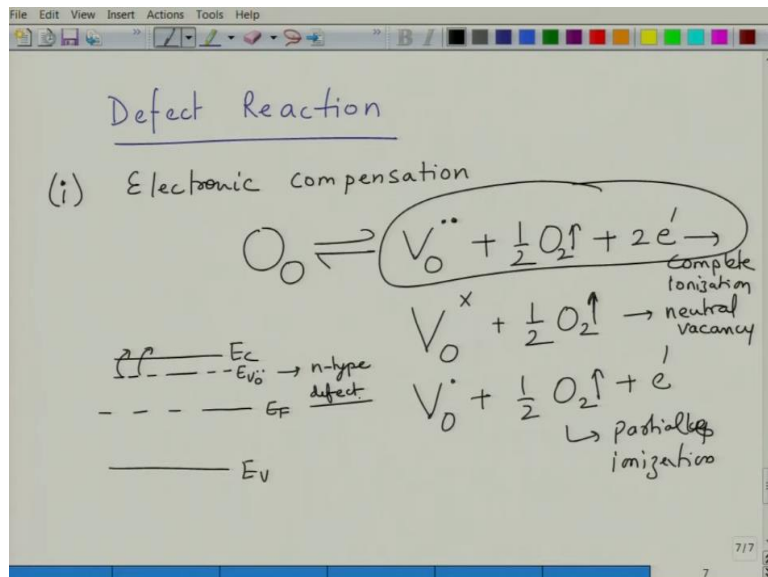 File Edit View Insert Actions Tools Help
B I
Defect Reaction
(i) Electronic compensation
O_O ⇌ V_O^{••} + 1/2 O_2↑ + 2e′ →
complete
ionization
V_O^x + 1/2 O_2↑ → neutral
vacancy
V_O^• + 1/2 O_2↑ + e′
↳ partially
ionization
E_C
E_{V_O^{••}} → n-type
defect
E_F
E_V
7/7
7